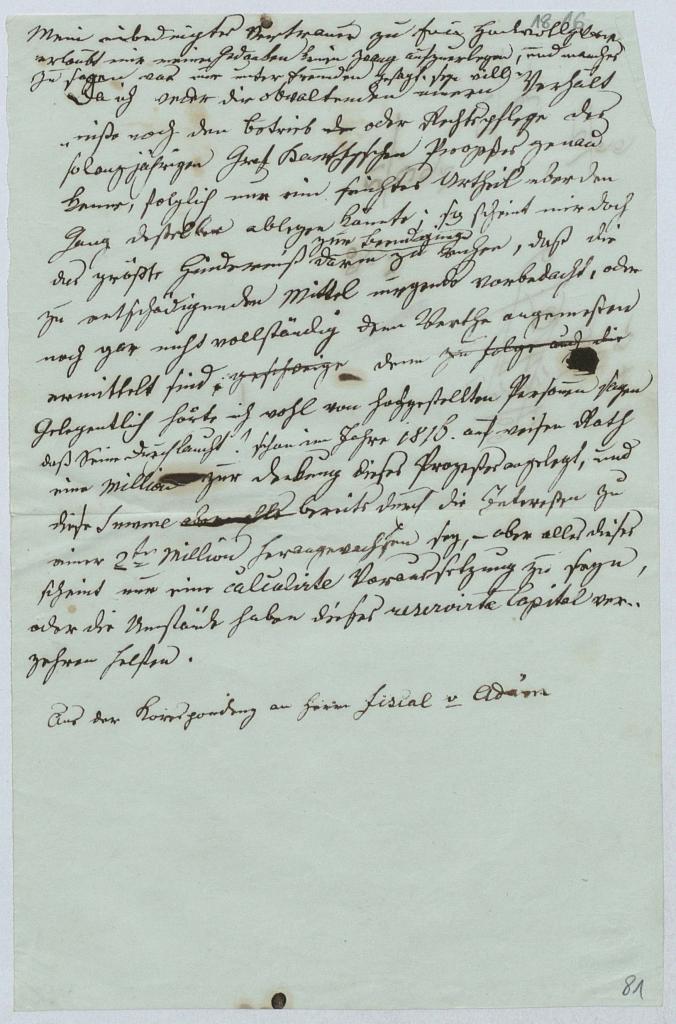 18 16
Mein unbedingtes Vertrauen zu Euer Hochwohlgeb
erlaubt mir meinen Gedanken keinen Zwang aufzuerlegen, und manches
zu sagen was nur unter Fremden gesagt sey will
Da ich weder die obwaltenden innern Verhält
nisse noch den Betrieb de oder Rechtspflege des
so langjährigen Graf Prozesses genau
kenne, folglich nur ein seichtes Urtheil über den
Gang desselben ablegen könnte; so scheint mir doch
zur Beendigung
das größte Hinderniß darin zu beruhen, daß die
zu entschädigenden Mittel nirgends vorbedacht, oder
noch gar nicht vollständig dem Werthe angemessen
ermittelt sind; geschweige denn zu folge auch die
Gelegentlich hörte ich wohl von hochgestellten Personen sagen
daß Seine Durchlaucht! schon im Jahre 1816. auf weisen Rath
eine Million zur Deckung dieses Prozesses angelegt, und
diese Summe aber alles bereits durch die Interessen zu
einer 2ten Million herangewachsen sey, – aber alles dieses
scheint nur eine calculirte Voraussetzung zu seyn,
oder die Umstände haben dieses reservirte Capital ver-
zehren helfen.
Aus der Korrespondenz an Herrn Fiscal v Adam
81